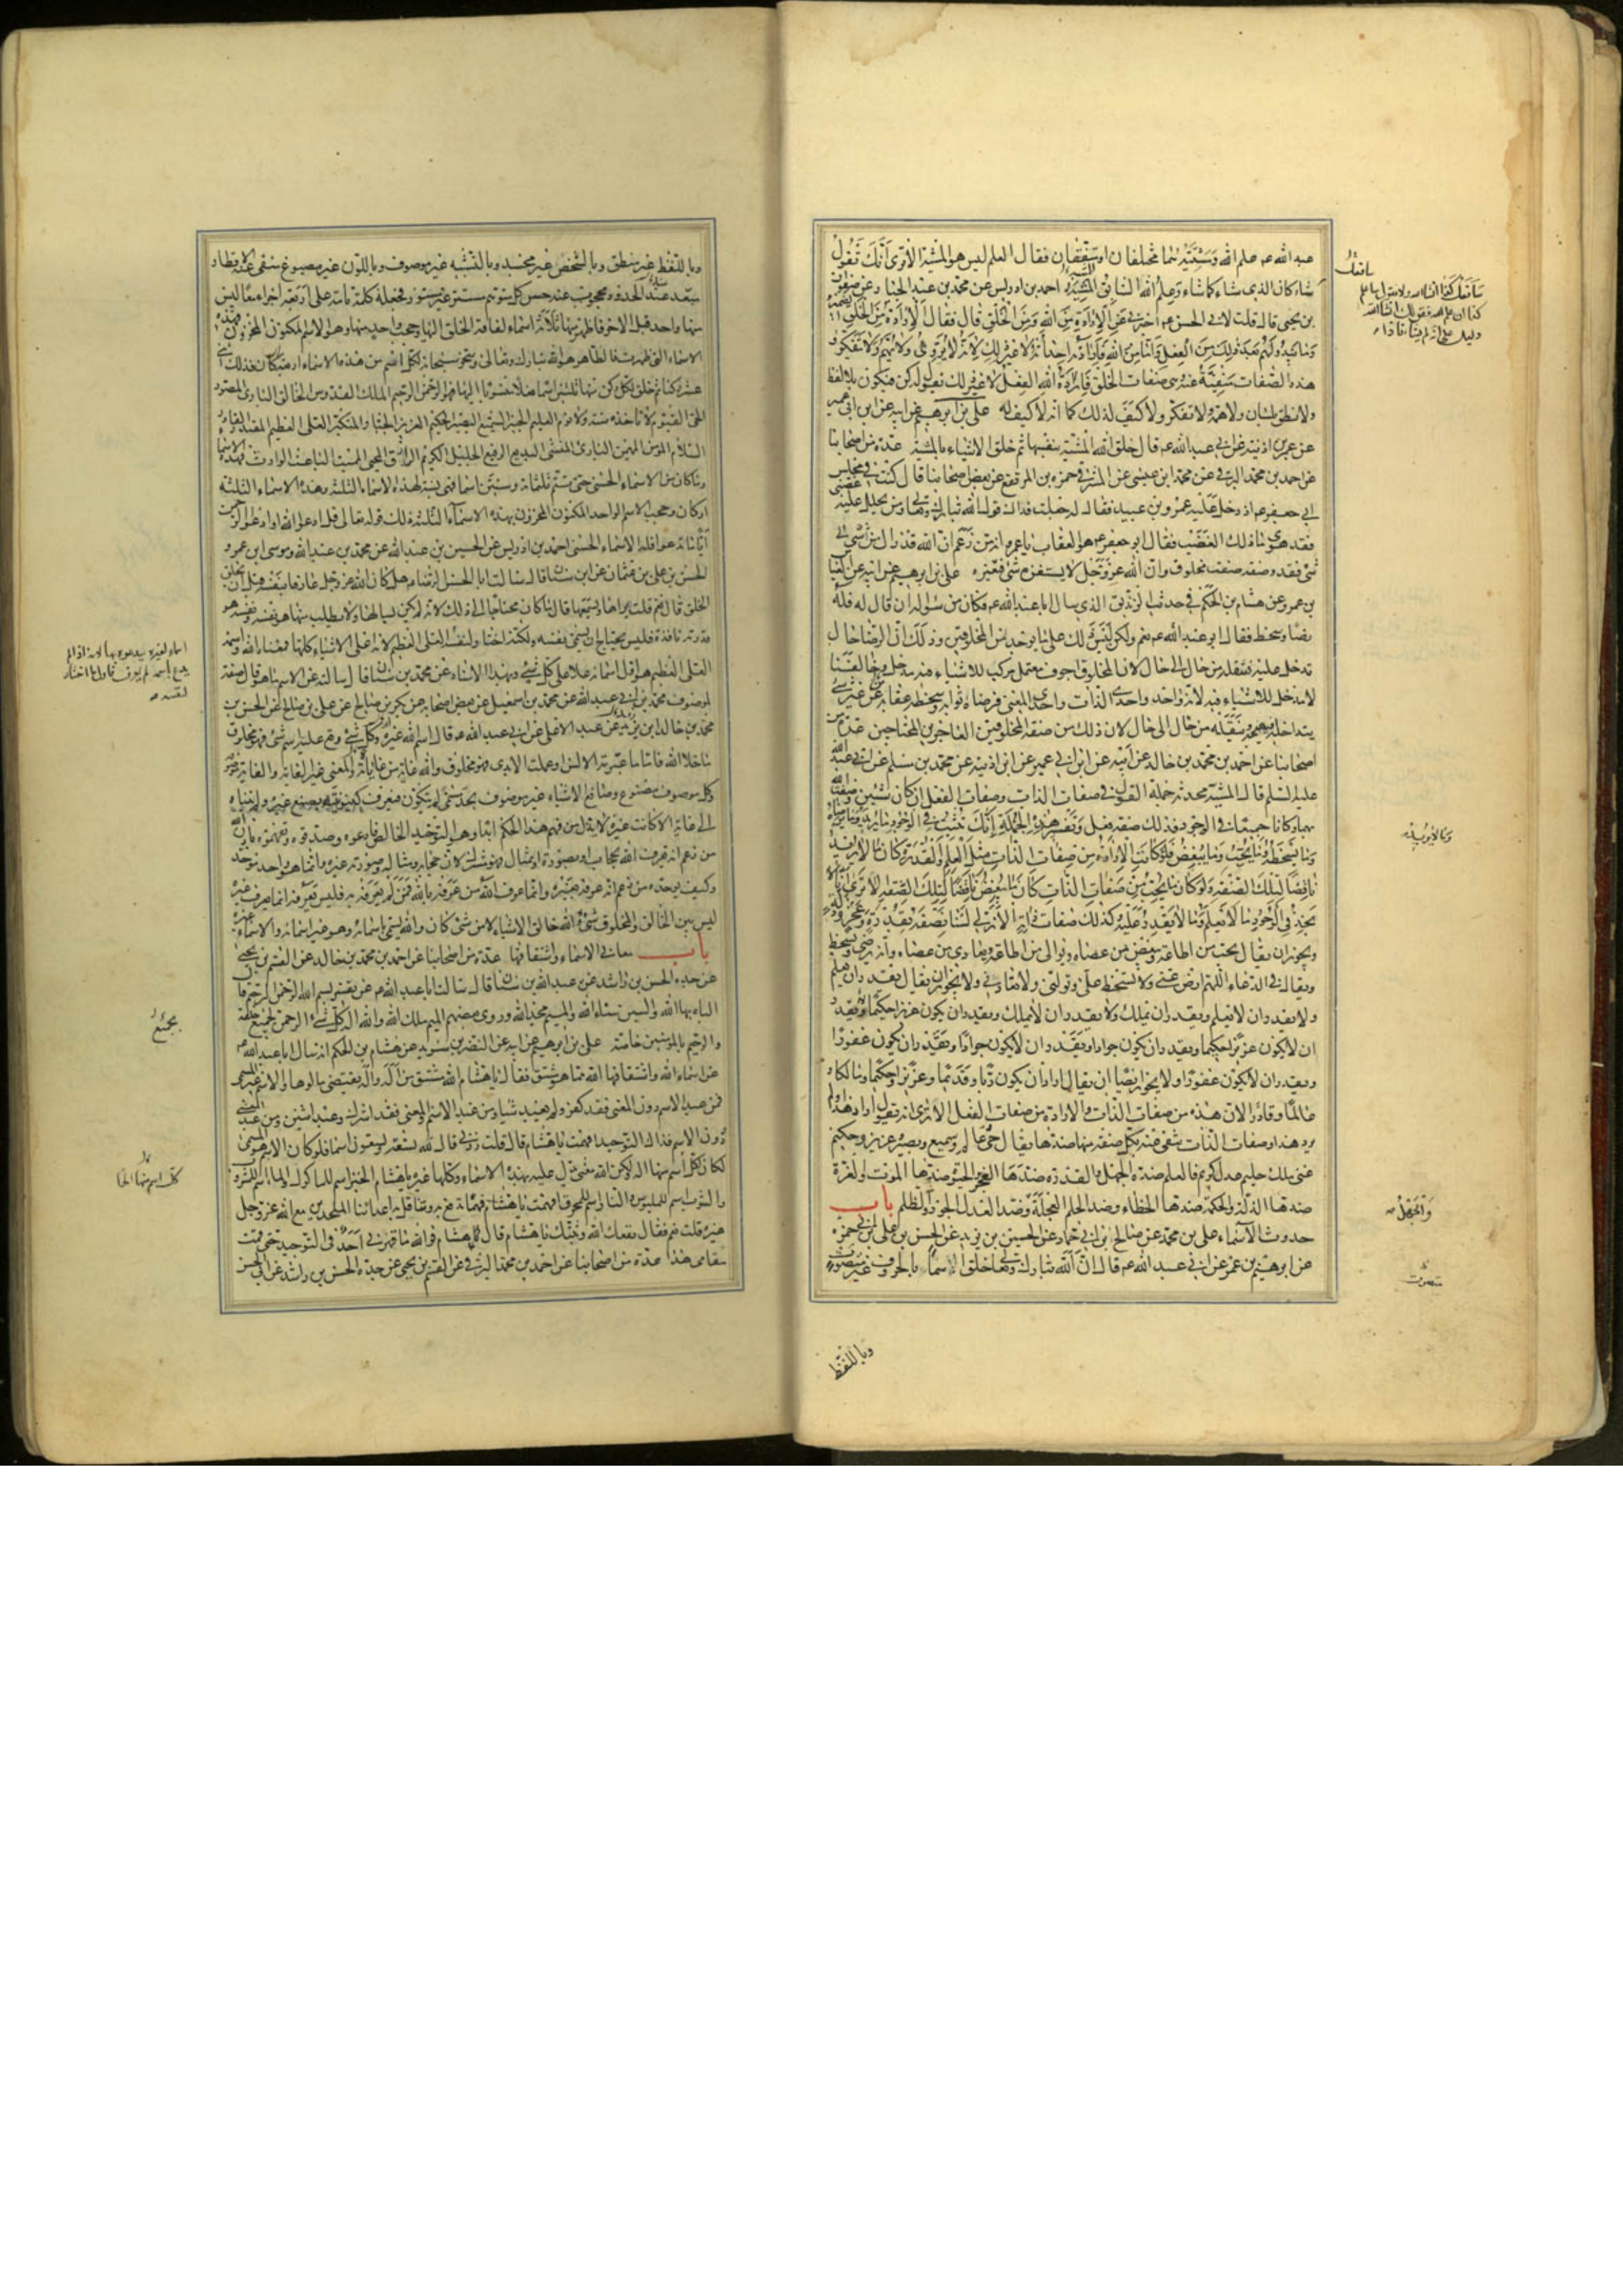 عبد الله عم علم الله ومشيته هما مختلفان او متفقان فقال العلم ليس هو المشية الا ترى انك تقول
شاء كان الذى شاء كما شاء وعلم الله السابق المشية احمد بن ادريس عن محمد بن عبد الجبار عن صفوان
بن يحيى قال قلت لابى الحسن عم اخبرنى عن الارادة من الله ومن الخلق قال فقال الارادة من الخلق
وما يبدو لهم بعد ذلك من الفعل واما من الله فارادته احداثه لا غير ذلك لانه لا يروى ولا يهم ولا يتفكر و
هذه الصفات منفية عنه وهى صفات الخلق فارادة الله الفعل لا غير ذلك يقول له كن فيكون بلا لفظ
ولا نطق بلسان ولا همة ولا تفكر ولا كيف لذلك كما انه لا كيف له على بن ابرهيم عن ابيه عن ابن ابى عمير
عن عمر بن اذينه عن ابى عبد الله عم قال خلق الله المشية بنفسها ثم خلق الاشياء بالمشية عدة من اصحابنا
عن احمد بن محمد البرقى عن محمد ابن عيسى عن المشرقى حمزه بن المرتفع عن بعض اصحابنا قال كنت فى مجلس
ابى جعفر عم اذ دخل عليه عمرو بن عبيد فقال له جعلت فداك قول الله تبارك وتعالى ومن يحلل عليه غضبى
فقد هوى ما ذلك الغضب فقال ابو جعفر عم هو العقاب يا عمرو انه من زعم ان الله قد زال من شئ الى
شئ فقد وصفه صفة مخلوق وان الله عز وجل لا يستفزه شئ فيغيره على بن ابرهيم عن ابيه عن العباس
بن عمرو عن هشام بن الحكم فى حديث الزنديق الذى سال ابا عبد الله عم فكان من سؤله ان قال له فله
رضا وسخط فقال ابو عبد الله عم نعم ولكن ليس ذلك على ما يوجد من المخلوقين وذلك ان الرضا حال
تدخل عليه فتنقله من حال الى حال لان المخلوق اجوف معتمل مركب للاشياء فيه مدخل وخالقنا
لا مدخل للاشياء فيه لانه واحد واحدى الذات واحدى المعنى فرضاه ثوابه وسخطه عقابه من غير شئ
يتداخله فيهيجه وينقله من حال الى حال لان ذلك من صفة المخلوقين العاجزين المحتاجين عدة من
اصحابنا عن احمد بن محمد بن خالد عن ابيه عن ابن ابى عمير عن ابن اذينه عن محمد بن مسلم عن ابى عبد الله
عليه السلم قال المشية محدثه جملة القول فى صفات الذات وصفات الفعل ان كان شئين وصفت الله
بهما وكانا جميعا فى الوجود فذلك صفة فعل وتفسير هذه الجملة انك تثبت فى الوجود ما يريد وما لا يريد وما يرضاه
وما يسخطه وما يحب وما يبغض فلو كانت الارادة من صفات الذات مثل العلم والقدرة كان ما لا يريد
ناقضا لتلك الصفة ولو كان ما يحب من صفات الذات كان ما يبغض ناقضا لتلك الصفة الا ترى انا لا
نجد فى الوجود ما لا يعلم وما لا يقدر عليه وكذلك صفات ذاته الازلى لسنا نصفه بقدرة وعجز وذلة
ويجوز ان يقال يحب من اطاعه ويبغض من عصاه ويوالى من اطاعه ويعادى من عصاه وانه يرضى ويسخط
ويقال فى الدعاء اللهم ارض عنى ولا تسخط على وتولنى ولا تعادنى ولا يجوز ان يقال يقدر ان يعلم
ولا يقدر ان لا يعلم ويقدر ان يملك ولا يقدر ان لا يملك ويقدر ان يكون عزيزا حكيما ولا يقدر
ان لا يكون عزيزا حكيما ويقدر ان يكون جوادا ولا يقدر ان لا يكون جوادا ويقدر ان يكون غفورا
ولا يقدر ان لا يكون غفورا ولا يجوز ايضا ان يقال اراد ان يكون ربا وقديما وعزيزا وحكيما ومالكا و
عالما وقادرا لان هذه من صفات الذات والارادة من صفات الفعل الا ترى انه يقول اراد هذا ولم
يرد هذا وصفات الذات تنفى عنه بكل صفة منها ضدها يقال حى عالم وسميع وبصير عزيز وحكيم
غنى ملك حليم عدل كريم فالعلم ضده الجهل والقدره ضدها العجز والحيوة ضدها الموت والعزة
ضدها الذلة والحكمة ضدها الخطاء وضد الحلم العجلة وضد العدل الجور والظلم باب
حدوث الاسماء على بن محمد عن صالح بن ابى حماد عن الحسين بن يزيد عن الحسن بن على بن ابى حمزه
عن ابرهيم بن عمر عن ابى عبد الله عم قال ان الله تبارك وتعالى خلق اسما بالحروف غير متصوت
وباللفظ
وباللفظ غير منطق وبالشخص غير مجسد وبالتشبيه غير موصوف وباللون غير مصبوغ منفى عنه الاقطار
مبعد عنه الحدود محجوب عنه حس كل متوهم مستتر غير مستور فجعله كلمة تامة على اربعة اجزاء معا ليس
منها واحد قبل الاخر فاظهر منها ثلاثة اسماء لفاقة الخلق اليها وحجب واحد منها وهو الاسم المكنون المخزون فهذه
الاسماء التى ظهرت فالظاهر هو الله تبارك وتعالى وسخر سبحانه لكل اسم من هذه الاسماء اربعة اركان فذلك اثنى
عشر ركنا ثم خلق لكل ركن منها ثلثين اسما فعلا منسوبا اليها فهو الرحمن الرحيم الملك القدوس الخالق البارئ المصور
الحى القيوم لا تاخذه سنة ولا نوم العليم الخبير السميع البصير الحكيم العزيز الجبار المتكبر العلى العظيم المقتدر القادر
السلام المؤمن المهيمن البارئ المنشئ البديع الرفيع الجليل الكريم الرازق المحيى المميت الباعث الوارث فهذه الاسما
وما كان من الاسماء الحسنى حتى تتم ثلثمائة وستين اسما فهى نسبة لهذه الاسماء الثلثة وهذه الاسماء الثلثة
اركان وحجب الاسم الواحد المكنون المخزون بهذه الاسماء الثلثة وذلك قوله تعالى قل ادعوا الله او ادعوا الرحمن
ايا ما تدعوا فله الاسماء الحسنى احمد بن ادريس عن الحسين بن عبد الله عن محمد بن عبد الله وموسى ابن عمر و
الحسن بن على بن عثمان عن ابن سنان قال سالت ابا الحسن الرضا عم هل كان الله عز وجل عارفا بنفسه قبل ان يخلق
الخلق قال نعم قلت يراها ويسمعها قال ما كان محتاجا الى ذلك لانه لم يكن يسالها ولا يطلب منها هو نفسه ونفسه هو
قدرته نافذة فليس يحتاج ان يسمى نفسه ولكنه اختار لنفسه العلى العظيم لانه اعلى الاشياء كلها فمعناه الله واسمه
العلى العظيم هو اول اسمائه علا على كل شئ وبهذا الاسناد عن محمد بن سنان قال سالته عن الاسم ما هو قال صفة
لموصوف محمد بن ابى عبد الله عن محمد بن اسمعيل عن بعض اصحابه عن بكر بن صالح عن على بن صالح عن الحسن بن
محمد بن خالد ابن يزيد عن عبد الاعلى عن ابى عبد الله عم قال اسم الله غيره وكل شئ وقع عليه اسم شئ فهو مخلوق
ما خلا الله فاما ما عبرته الالسن او عملت الايدى فهو مخلوق والله غاية من غاياته والمعنى غير الغاية والغاية موصوفة
وكل موصوف مصنوع وصانع الاشياء غير موصوف بحد مسمى لم يتكون فيعرف كينونيته بصنع غيره ولم يتناه
الى غاية الا كانت غيره لا يزل من فهم هذا الحكم ابدا وهو التوحيد الخالص فارعوه وصدقوه وتفهموه باذن الله
من زعم انه يعرف الله بحجاب او بصورة او بمثال فهو مشرك لان حجابه ومثاله وصورته غيره وانما هو واحد متوحد
وكيف يوحده من زعم انه عرفه بغيره وانما عرف الله من عرفه بالله فمن لم يعرفه به فليس يعرفه انما يعرف غيره
ليس بين الخالق والمخلوق شئ الله خالق الاشياء لا من شئ كان والله يسمى باسمائه وهو غير اسمائه والاسماء غيره
باب معانى الاسماء واشتقاقها عدة من اصحابنا عن احمد بن محمد بن خالد عن القسم بن يحيى
عن جده الحسن بن راشد عن عبد الله بن سنان قال سالت ابا عبد الله عم عن تفسير بسم الله الرحمن الرحيم قال
الباء بهاء الله والسين سناء الله والميم مجد الله وروى بعضهم الميم ملك الله والله اله كل شئ الرحمن لجميع خلقه
والرحيم بالمؤمنين خاصة على بن ابرهيم عن ابيه عن النضر بن سويد عن هشام بن الحكم انه سال ابا عبد الله عم
عن اسماء الله واشتقاقها الله مما هو مشتق فقال يا هشام الله مشتق من اله واله يقتضى مالوها والاسم غير المسمى
فمن عبد الاسم دون المعنى فقد كفر ولم يعبد شيا ومن عبد الاسم والمعنى فقد اشرك وعبد اثنين ومن عبد المعنى
دون الاسم فذاك التوحيد افهمت يا هشام قال قلت زدنى قال لله تسعة وتسعون اسما فلو كان الاسم هو المسمى
لكان لكل اسم منها اله ولكن الله معنى يدل عليه بهذه الاسماء وكلها غيره يا هشام الخبز اسم للماكول والماء اسم للمشروب
والثوب اسم للملبوس والنار اسم للمحرق افهمت يا هشام فهما تدفع به وتناقل به اعدائنا الملحدين مع الله عز وجل
غيره قلت نعم فقال نفعك الله وثبتك يا هشام قال هشام فوالله ما قهرنى احد فى التوحيد حتى قمت
مقامى هذا عدة من اصحابنا عن احمد بن محمد البرقى عن القسم بن يحيى عن جده الحسن بن راشد عن ابى الحسن